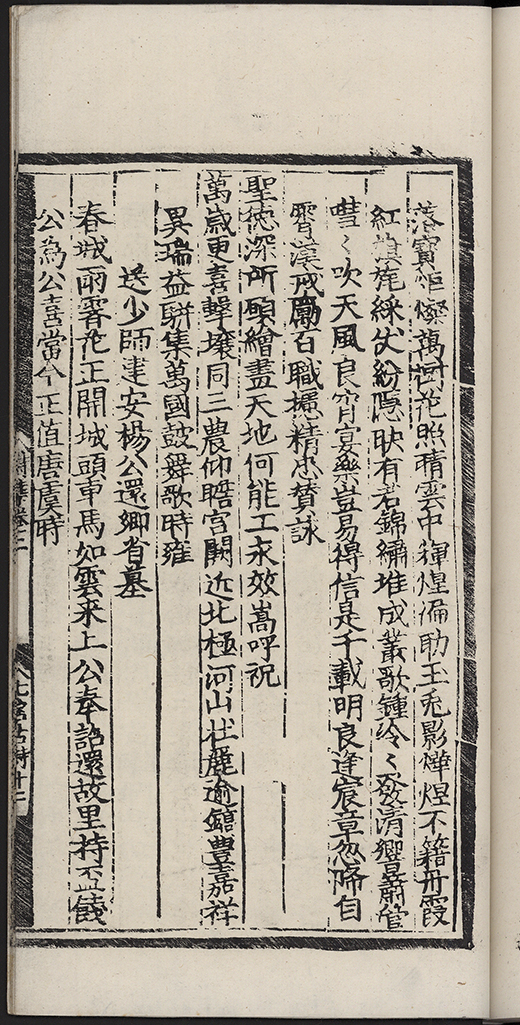 落寶炬燦萬⿰花照晴雲中輝煌偏助玉兎影燁煜不籍丹霞
紅旗旄綵仗紛隱映有若錦繡堆成叢歌鍾泠〻發清響簫管
嘒〻吹天風良宵宴樂豈易得信是千載明良逢宸章忽啼自
霄漢戒勵百職攄精忠賛詠
聖德深所願繪畫天地何能工永效嵩呼祝
萬歲更喜擊壤同三農仰瞻宮闕近北極河山壮麗逾鎬豐嘉祥
異瑞益駢集萬國鼓舞歌時雍
送少師建安楊公還鄉省墓
春城雨霽花正開城頭車馬如雲来上公奉詔還故里持盃餞
公為公喜當今正值唐虞時